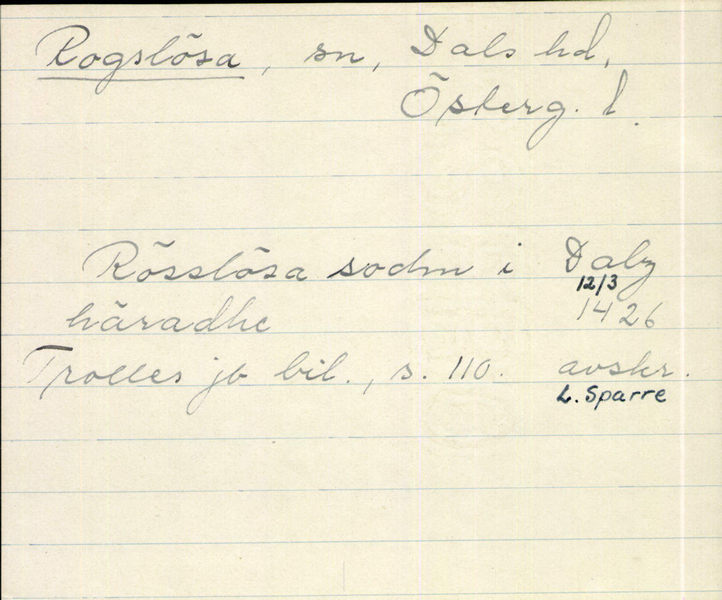 Rogslösa, sn, Dals hd,
Östberg. l.
Rösslösa sochn i Dalz
häradhe 12/3 1426
Trolles jb bil., s. 110. avskr.
L. Sparre